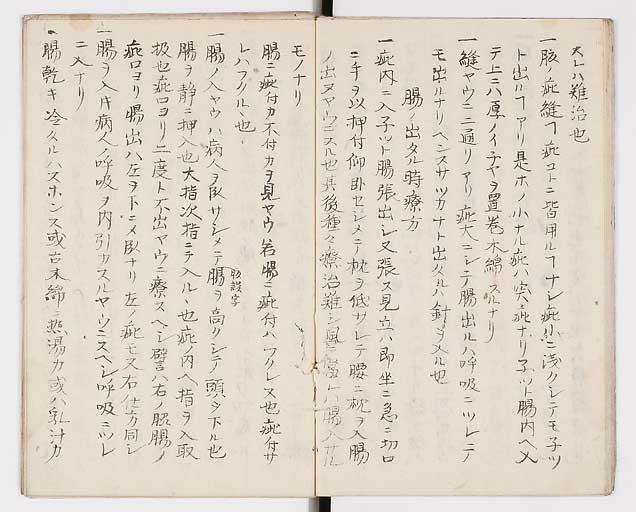 大レハ難治也
一腹ノ疵縫フ疵コトニ皆用ルフナシ疵小ニ浅クシテモ子ツ
ト出ルフアリ是ホノ小ナル疵ハ突疵ナリ子ツト腸内ヘ入
テ上ニハ厚ノイチヤヲ置巻木綿スルナリ
一縫ヤウニ二通リアリ疵大ニシテ腸出ルハ呼吸ニツレテ
モ出ルナリヘンスサツカナト出タルハ針ヲ入ル也
腸ノ出タル時療方
一疵内ニ入子ツト腸張出シ又張ス見立ハ即坐ニ急ニ切口
ニ手ヲ以押付仰臥セシメテ枕ヲ低サレテ腰ニ枕ヲ入腸
ノ出ヌヤウニスル也其後種々療治難シ風當レハ腸入サル
モノナリ
腸ニ疵付カ不付カヲ見ヤウ若腸ニ疵付ハフクレヌ也疵付サ
レハフクルヽ也
一腸ノ入ヤウハ病人ヲ臥サシメテ腸ヲ高クシテ頭ヲ下ル也
腸ヲ静ニ押入也大指次指ニテ入ルヽ也疵ノ内ヘ指ヲ入取
扱也疵口ヨリ二度ト不出ヤウニ療スヘシ譬ハ右ノ
疵口ヨリ腸出ハ左ヲ下ニメ臥ナリ左ノ疵モ又右仕方同シ
一腸ヲ入キ病人ノ呼吸ヲ内引カスルヤウニスヘシ呼吸ニツレ
ニ入ナリ
一腸乾キ冷タルハスホンス或古木綿ニ熱湯カ或ハ乳汁カ